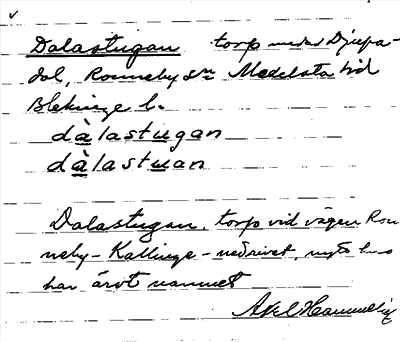 Dalastugan torp under Djupa-
dal, Ronneby sn Medelsta hd
Blekinge l.
dàlastugan
dàlastuan
Dalastugan, torp vid vägen Ron
neby-Kallinge - nedrivet, nytt hus
har ärvt namnet
Axel